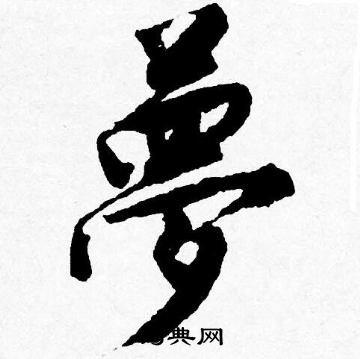 夢
典网